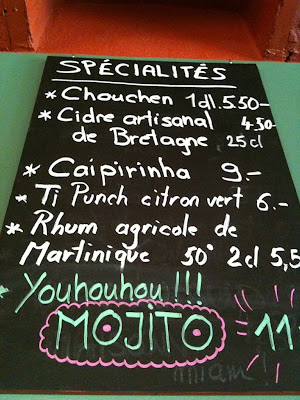 SPÉCIALITÉS
* Chouchen 1dl 5.50-
* Cidre artisanal 4.50-
de Bretagne 25cl
* Caïpirinha 9.-
* Ti Punch citron vert 6.-
* Rhum agricole de
Martinique 50° 2cl 5,5
* Youhouhou !!!
MOJITO 11
miam !